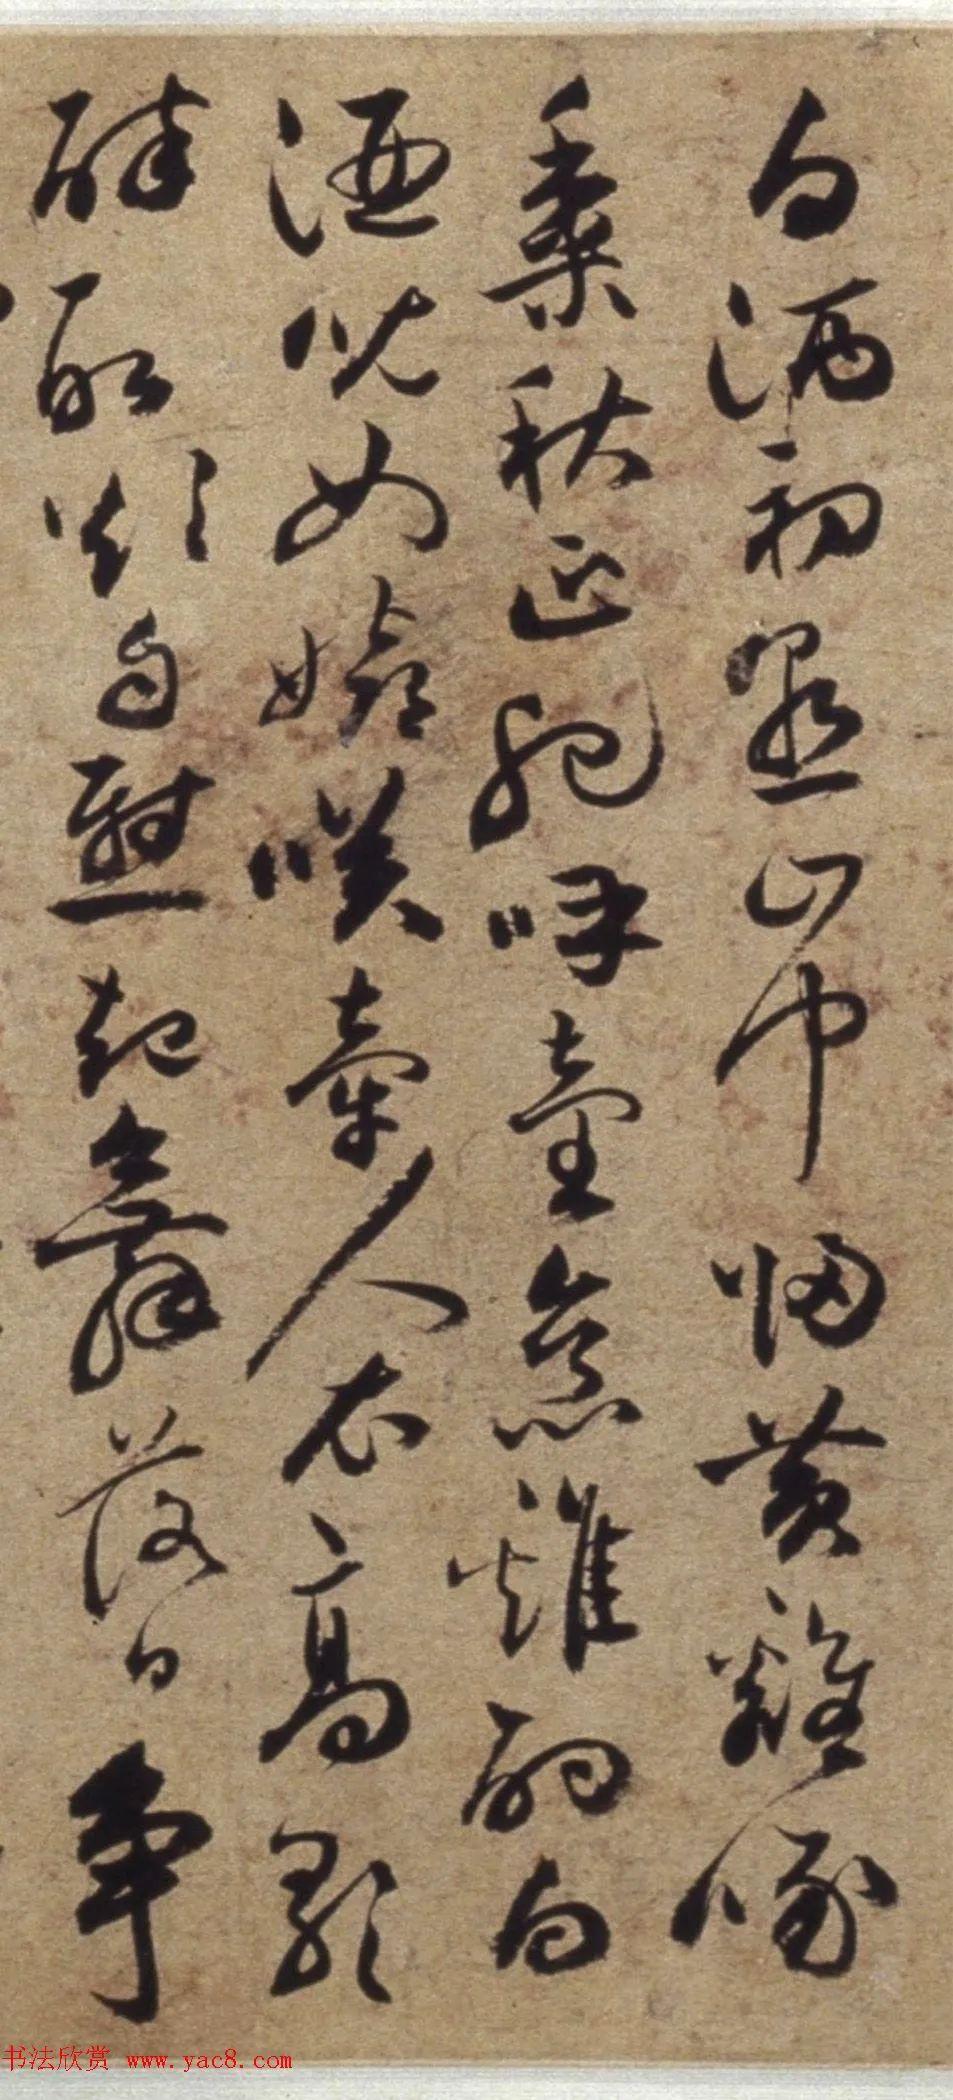 白酒初熟山中歸黃雞啄
黍秋正肥呼童烹雞酌白
酒兒女嬉咲牽人衣高歌
醉取欲自慰起舞落日爭
书法欣赏 www.yac8.com